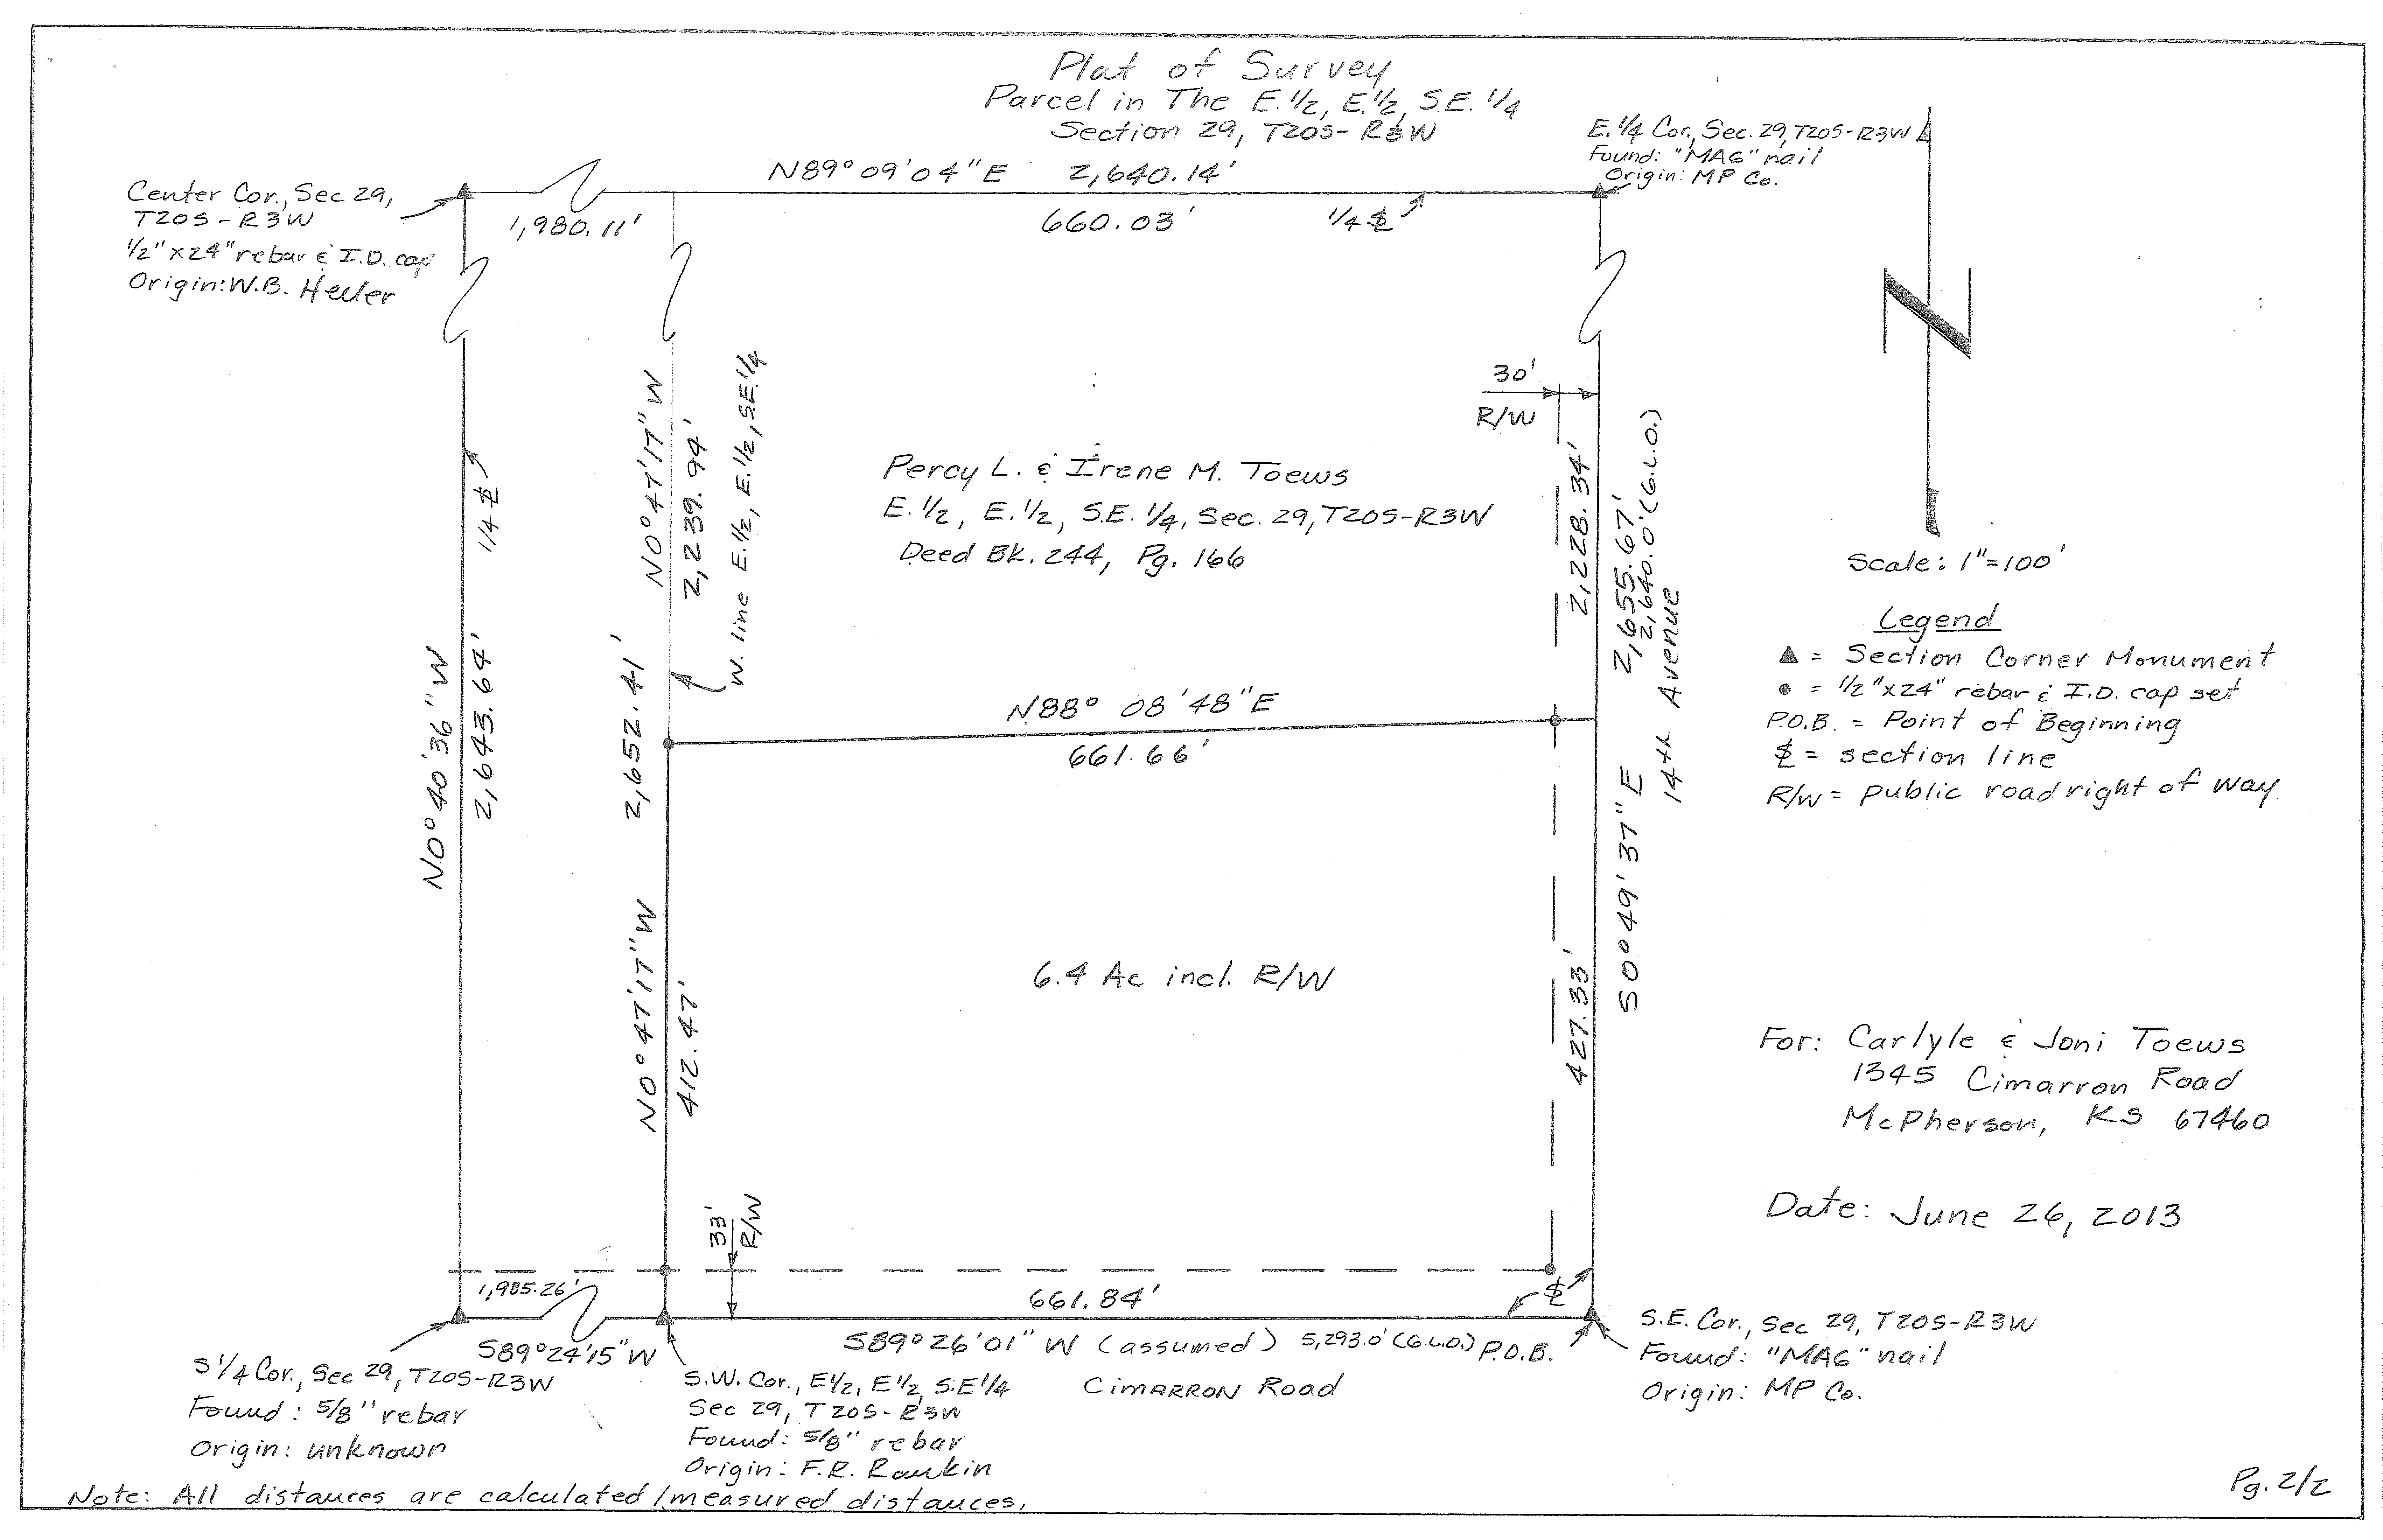 Plat of Survey
Parcel in The E.1/2, E.1/2, S.E. 1/4
Section 29, T20S-R3W
N89°09'04"E 2,640.14'
E.1/4 Cor., Sec. 29, T20S-R3W
Found: "MAG" nail
Origin: MP Co.
Center Cor., Sec 29,
T20S-R3W
1/2"x24" rebar & I.D. cap
Origin: W.B. Heller
1,980.11'
660.03'
1/4 SL
30'
R/W
N0°47'17"W
2,239.94'
W. line E.1/2, E.1/2, S.E.1/4
Percy L. & Irene M. Toews
E.1/2, E.1/2, S.E. 1/4, Sec. 29, T20S-R3W
Deed Bk. 244, Pg. 166
2,228.34'
2,655.67'
2,640.0' (G.L.O.)
14th Avenue
S0°49'37"E
Scale: 1"=100'
Legend
▲ = Section Corner Monument
● = 1/2"x24" rebar & I.D. cap set
P.O.B. = Point of Beginning
SL = section line
R/W = public road right of way.
1/4 SL
N0°40'36"W
2,643.64'
2,652.41'
N88° 08'48"E
661.66'
6.4 Ac incl. R/W
N0°47'17"W
412.47'
427.33'
For: Carlyle & Joni Toews
1345 Cimarron Road
McPherson, KS 67460
Date: June 26, 2013
33'
R/W
1,985.26'
661.84'
SL
S89°24'15"W
S89°26'01"W (assumed) 5,293.0' (G.L.O.) P.O.B.
CIMARRON Road
S 1/4 Cor., Sec 29, T20S-R3W
Found: 5/8" rebar
Origin: unknown
S.W. Cor., E1/2, E1/2, S.E1/4
Sec 29, T20S-R3W
Found: 5/8" rebar
Origin: F.R. Rankin
S.E. Cor., Sec 29, T20S-R3W
Found: "MAG" nail
Origin: MP Co.
Note: All distances are calculated/measured distances.
Pg. 2/2
N